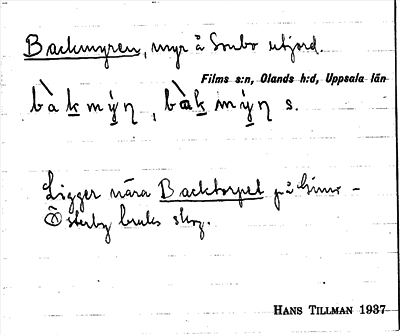 Backmyren, myr å Sunbo utjord.
Films s:n, Olands h:d, Uppsala län
bàkmý̨n, bàkmý̨n s.
Ligger nära Backtorpet på Gimo -
Österby bruks skog.
HANS TILLMAN 1937